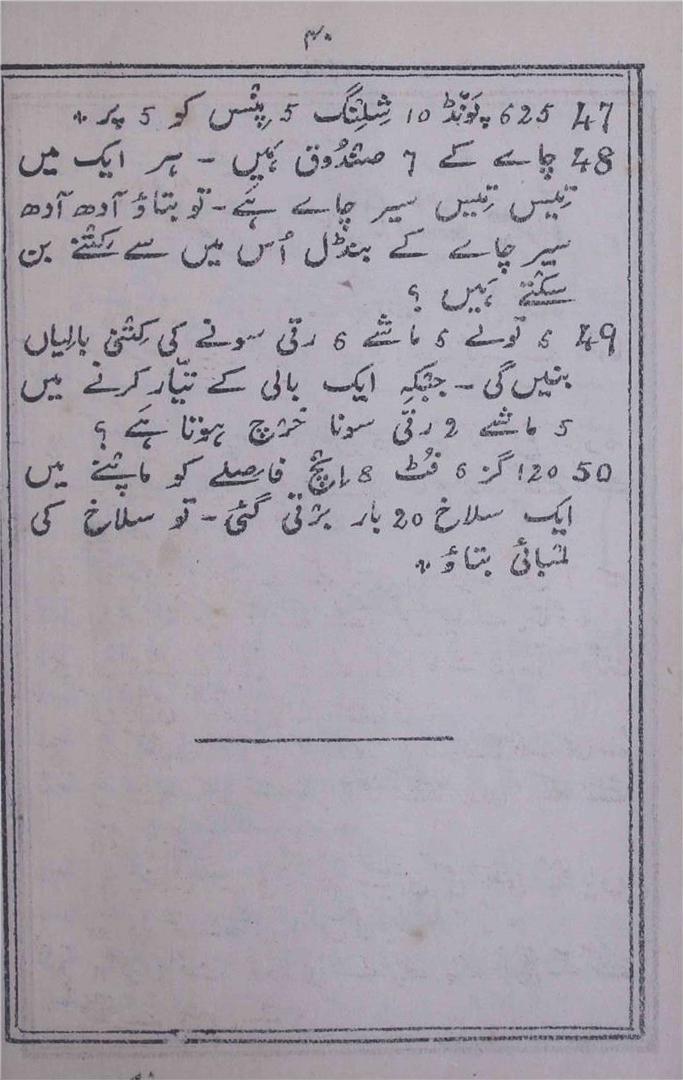 ۴۰
47 625 پونڈ 10 شِلِنگ 5 پِنْس کو 5 پر ٭
48 چاے کے 7 صنْدُوق ہَیں ـ ہر ایک میں
تِیس تِیس سیر چاے ہَے ـ تو بتاؤ آدھ آدھ
سیر چاے کے بنڈل اُس میں سے کِتْنے بن
سکْتے ہَیں ؟
49 5 تولے 5 ماشے 6 رتی سونے کی کِتْنی بالیاں
بنیں گی ـ جبْکہِ ایک بالی کے تیّار کرنے میں
5 ماشے 2 رتّی سونا خرْچ ہوتا ہَے ؟
50 120 گز 6 فُٹ 8 اِنْچ فاصِلے کو ماپْنے میں
ایک سلاخ 20 بار برْتی گئی ـ تو سلاخ کی
لمْبائی بتاؤ ٭